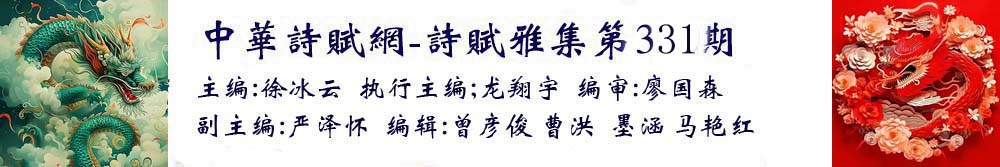 中華詩賦網-詩賦雅集第331期
主编:徐冰云 执行主编;龙翔宇 编审:廖国森
副主编:严泽怀 编辑:曾彦俊 曹洪 墨涵 马艳红